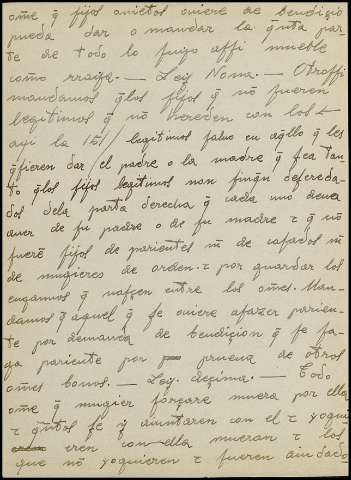 ome q̄ fijos ouietos ouiere de bendiçiō
pueda dar o mandar la q̄nta par-
te de todo lo fuyo affi mueble
como rrayz. — Ley Nona. — Otroffi
mandamos q̄los fijos q̄ nō fueren
legitimos q̄ nō hereden con los
aqui la 151/ legitimos faluo en aq̄llo q̄ les
q̄fieren dar el padre o la madre q̄ fea tan-
to q̄los fijos legitimos non finq̄n defereda-
dos dela parte derecha q̄ cada uno deue
auer de fu padre o de fu madre τ q̄ nō
fuerē fijos de parientes nī de cafados nī
de mugieres de orden. τ por guardar los
engannos q̄ nafçen entre los omēs. Man-
damos q̄ aquel q̄ fe ouiere afazer parien-
te por demanda de bendiçion q̄ fe fa-
ga pariente por prueua de otros
omēs bonos. — Ley. deçima. — Todo
ome q̄ mugier forçare muera por ella
τ q̄ntos fe y aiuntaren con el τ yogui
eren con ella mueran τ los
que nō yoguieren τ fueren aiudado